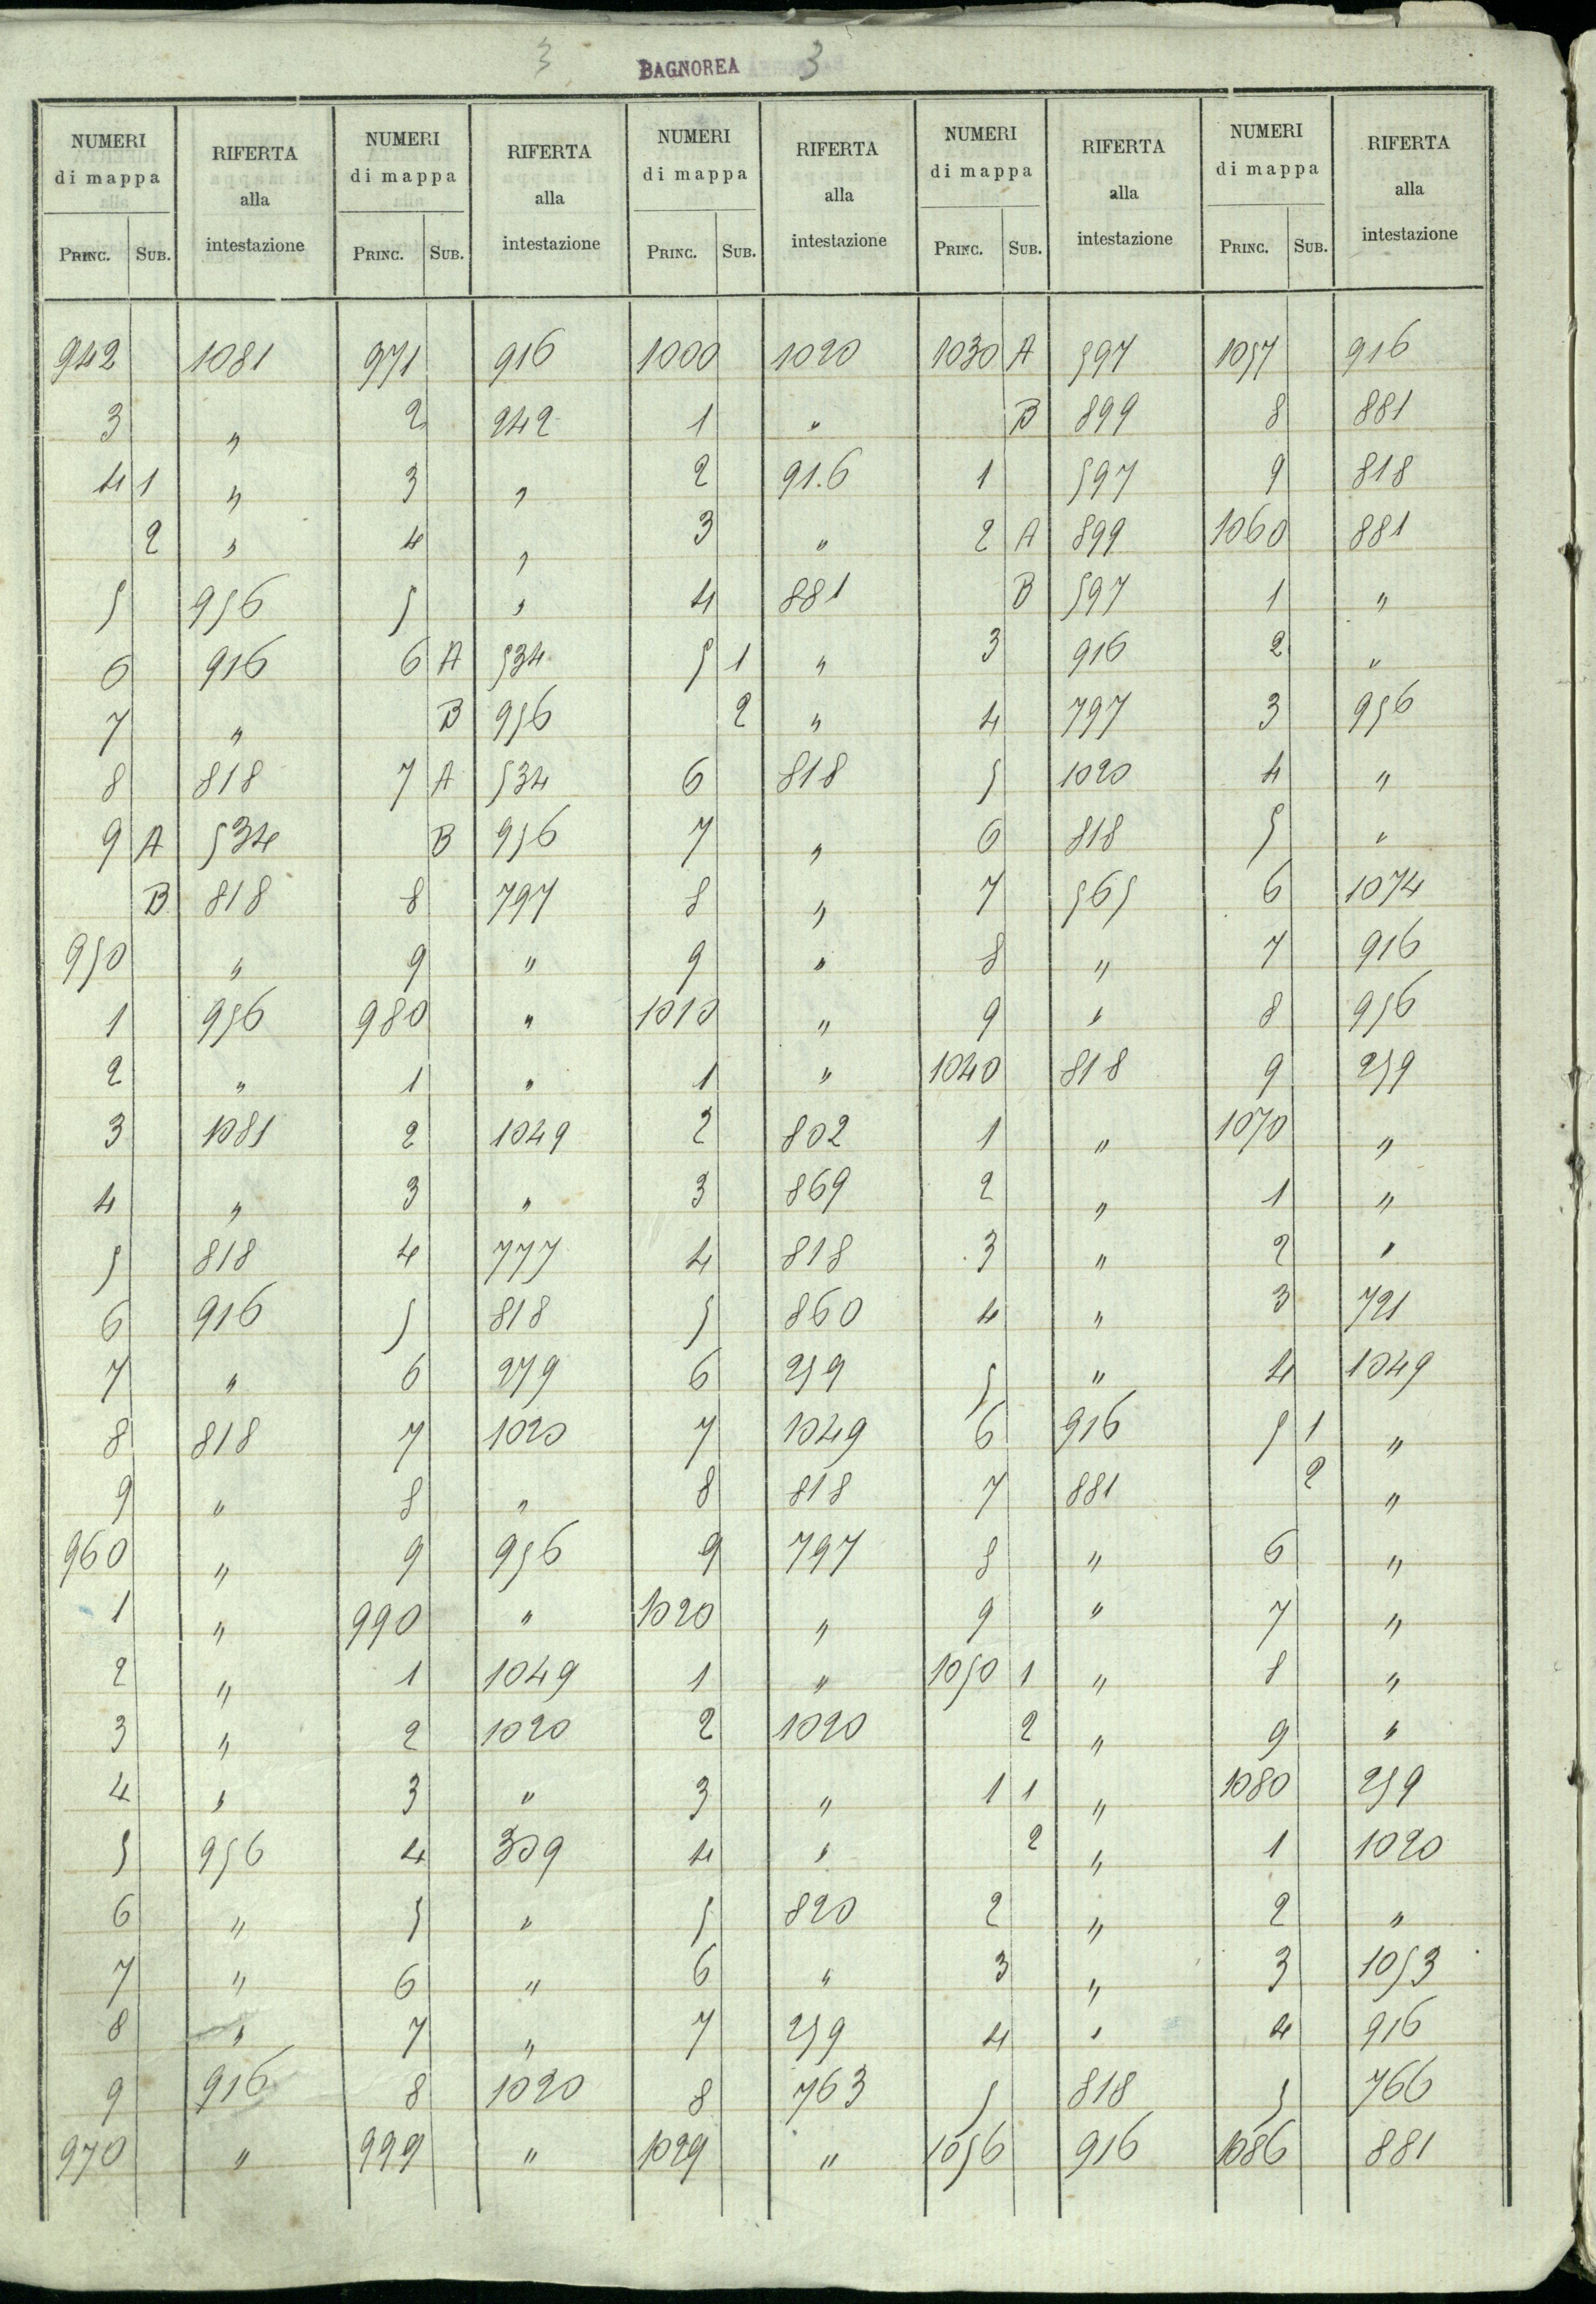 3 BAGNOREA 3
NUMERI di mappa RIFERTA alla intestazione NUMERI di mappa RIFERTA alla intestazione NUMERI di mappa RIFERTA alla intestazione NUMERI di mappa RIFERTA alla intestazione NUMERI di mappa RIFERTA alla intestazione
PRINC. SUB. PRINC. SUB. PRINC. SUB. PRINC. SUB. PRINC. SUB.
942 1081 971 916 1000 1020 1030 A 597 1057 916
3 " 2 242 1 " B 899 8 881
4 1 " 3 " 2 91.6 1 597 9 818
2 " 4 " 3 " 2 A 899 1060 881
5 956 5 " 4 881 B 597 1 "
6 916 6 A 534 5 1 " 3 916 2 "
7 " B 956 2 " 4 797 3 956
8 818 7 A 534 6 818 5 1020 4 "
9 A 534 B 956 7 " 6 818 5 "
B 818 8 797 8 " 7 565 6 1074
950 " 9 " 9 " 8 " 7 916
1 956 980 " 1010 " 9 " 8 956
2 " 1 " 1 " 1040 818 9 259
3 1081 2 1049 2 802 1 " 1070 "
4 " 3 " 3 869 2 " 1 "
5 818 4 777 4 818 3 " 2 "
6 916 5 818 5 860 4 " 3 721
7 " 6 279 6 259 5 " 4 1049
8 818 7 1020 7 1049 6 916 5 1 "
9 " 8 " 8 818 7 881 2 "
960 " 9 956 9 797 8 " 6 "
1 " 990 " 1020 " 9 " 7 "
2 " 1 1049 1 " 1050 1 " 8 "
3 " 2 1020 2 1020 2 " 9 "
4 " 3 " 3 " 1 1 " 1080 259
5 956 4 309 4 " 2 " 1 1020
6 " 5 " 5 820 2 " 2 "
7 " 6 " 6 " 3 " 3 1053
8 " 7 " 7 259 4 " 4 916
9 916 8 1020 8 763 5 818 5 766
970 " 999 " 1029 " 1056 916 1086 881